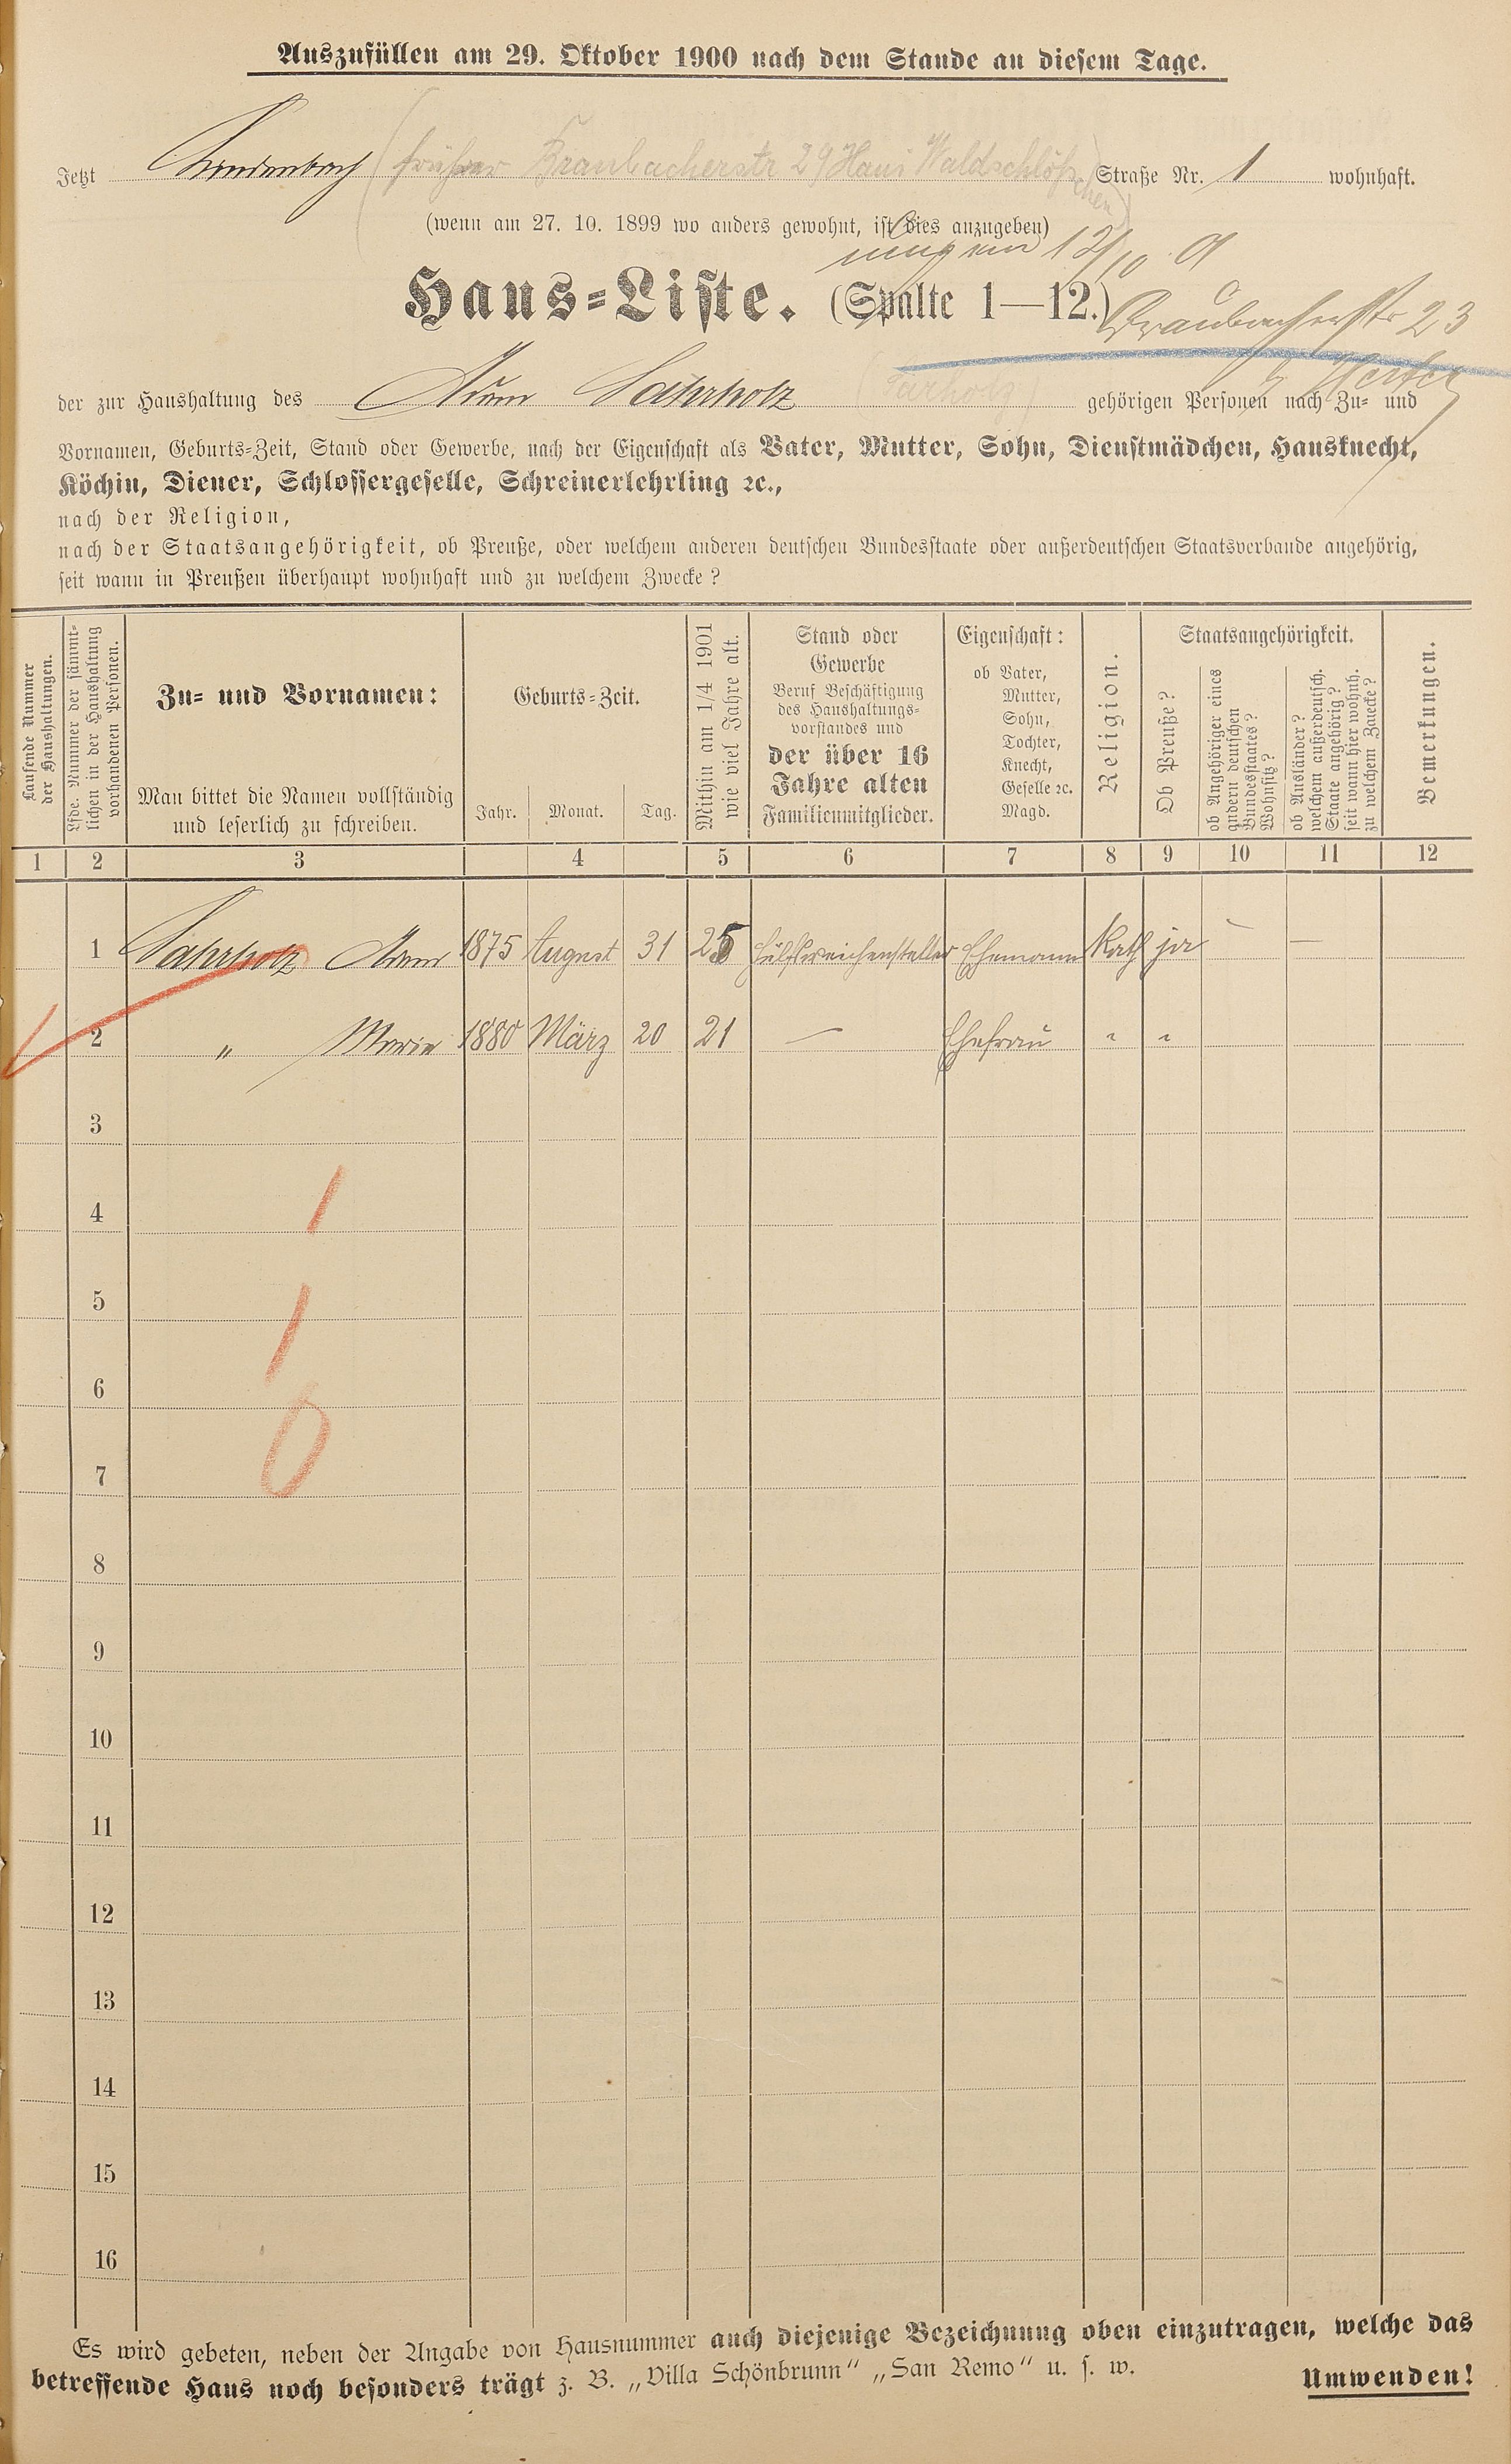 Auszufüllen am 29. Oktober 1900 nach dem Stande an diesem Tage.
Jetzt (früher Braubacherstr 29 Haus Waldschlößchen) Straße Nr. 1 wohnhaft.
(wenn am 27. 10. 1899 wo anders gewohnt, ist dies anzugeben)
Haus-Liste. (Spalte 1—12.)
Braubacherstr 23
der zur Haushaltung des Adam Sahrholz (Sarholz) gehörigen Personen nach Zu- und
Vornamen, Geburts-Zeit, Stand oder Gewerbe, nach der Eigenschaft als Vater, Mutter, Sohn, Dienstmädchen, Hausknecht,
Köchin, Diener, Schlossergeselle, Schreinerlehrling ꝛc.,
nach der Religion,
nach der Staatsangehörigkeit, ob Preuße, oder welchem anderen deutschen Bundesstaate oder außerdeutschen Staatsverbande angehörig,
seit wann in Preußen überhaupt wohnhaft und zu welchem Zwecke?
Laufende Nummer
der Haushaltungen.
Lfde. Nummer der sämmt-
lichen in der Haushaltung
vorhandenen Personen.
Zu- und Vornamen:
Man bittet die Namen vollständig
und leserlich zu schreiben.
Geburts-Zeit.
Jahr. Monat. Tag.
Mithin am 1/4 1901
wie viel Jahre alt.
Stand oder
Gewerbe
Beruf Beschäftigung
des Haushaltungs-
vorstandes und
der über 16
Jahre alten
Familienmitglieder.
Eigenschaft:
ob Vater,
Mutter,
Sohn,
Tochter,
Knecht,
Geselle ꝛc.
Magd.
Religion.
Staatsangehörigkeit.
Ob Preuße?
ob Angehöriger eines
andern deutschen
Bundesstaates?
Wohnsitz?
ob Ausländer?
welchem außerdeutsch.
Staate angehörig?
seit wann hier wohnh.
zu welchem Zwecke?
Bemerkungen.
1 2 3 4 5 6 7 8 9 10 11 12
1 Sahrholz Adam 1875 August 31 25 Hülfsweichensteller Ehemann Kath ja — —
2 " Maria 1880 März 20 21 — Ehefrau " "
3
4
1
5
1
6
0
7
8
9
10
11
12
13
14
15
16
Es wird gebeten, neben der Angabe von Hausnummer auch diejenige Bezeichnung oben einzutragen, welche das
betreffende Haus noch besonders trägt z. B. „Villa Schönbrunn" „San Remo" u. s. w.
Umwenden!